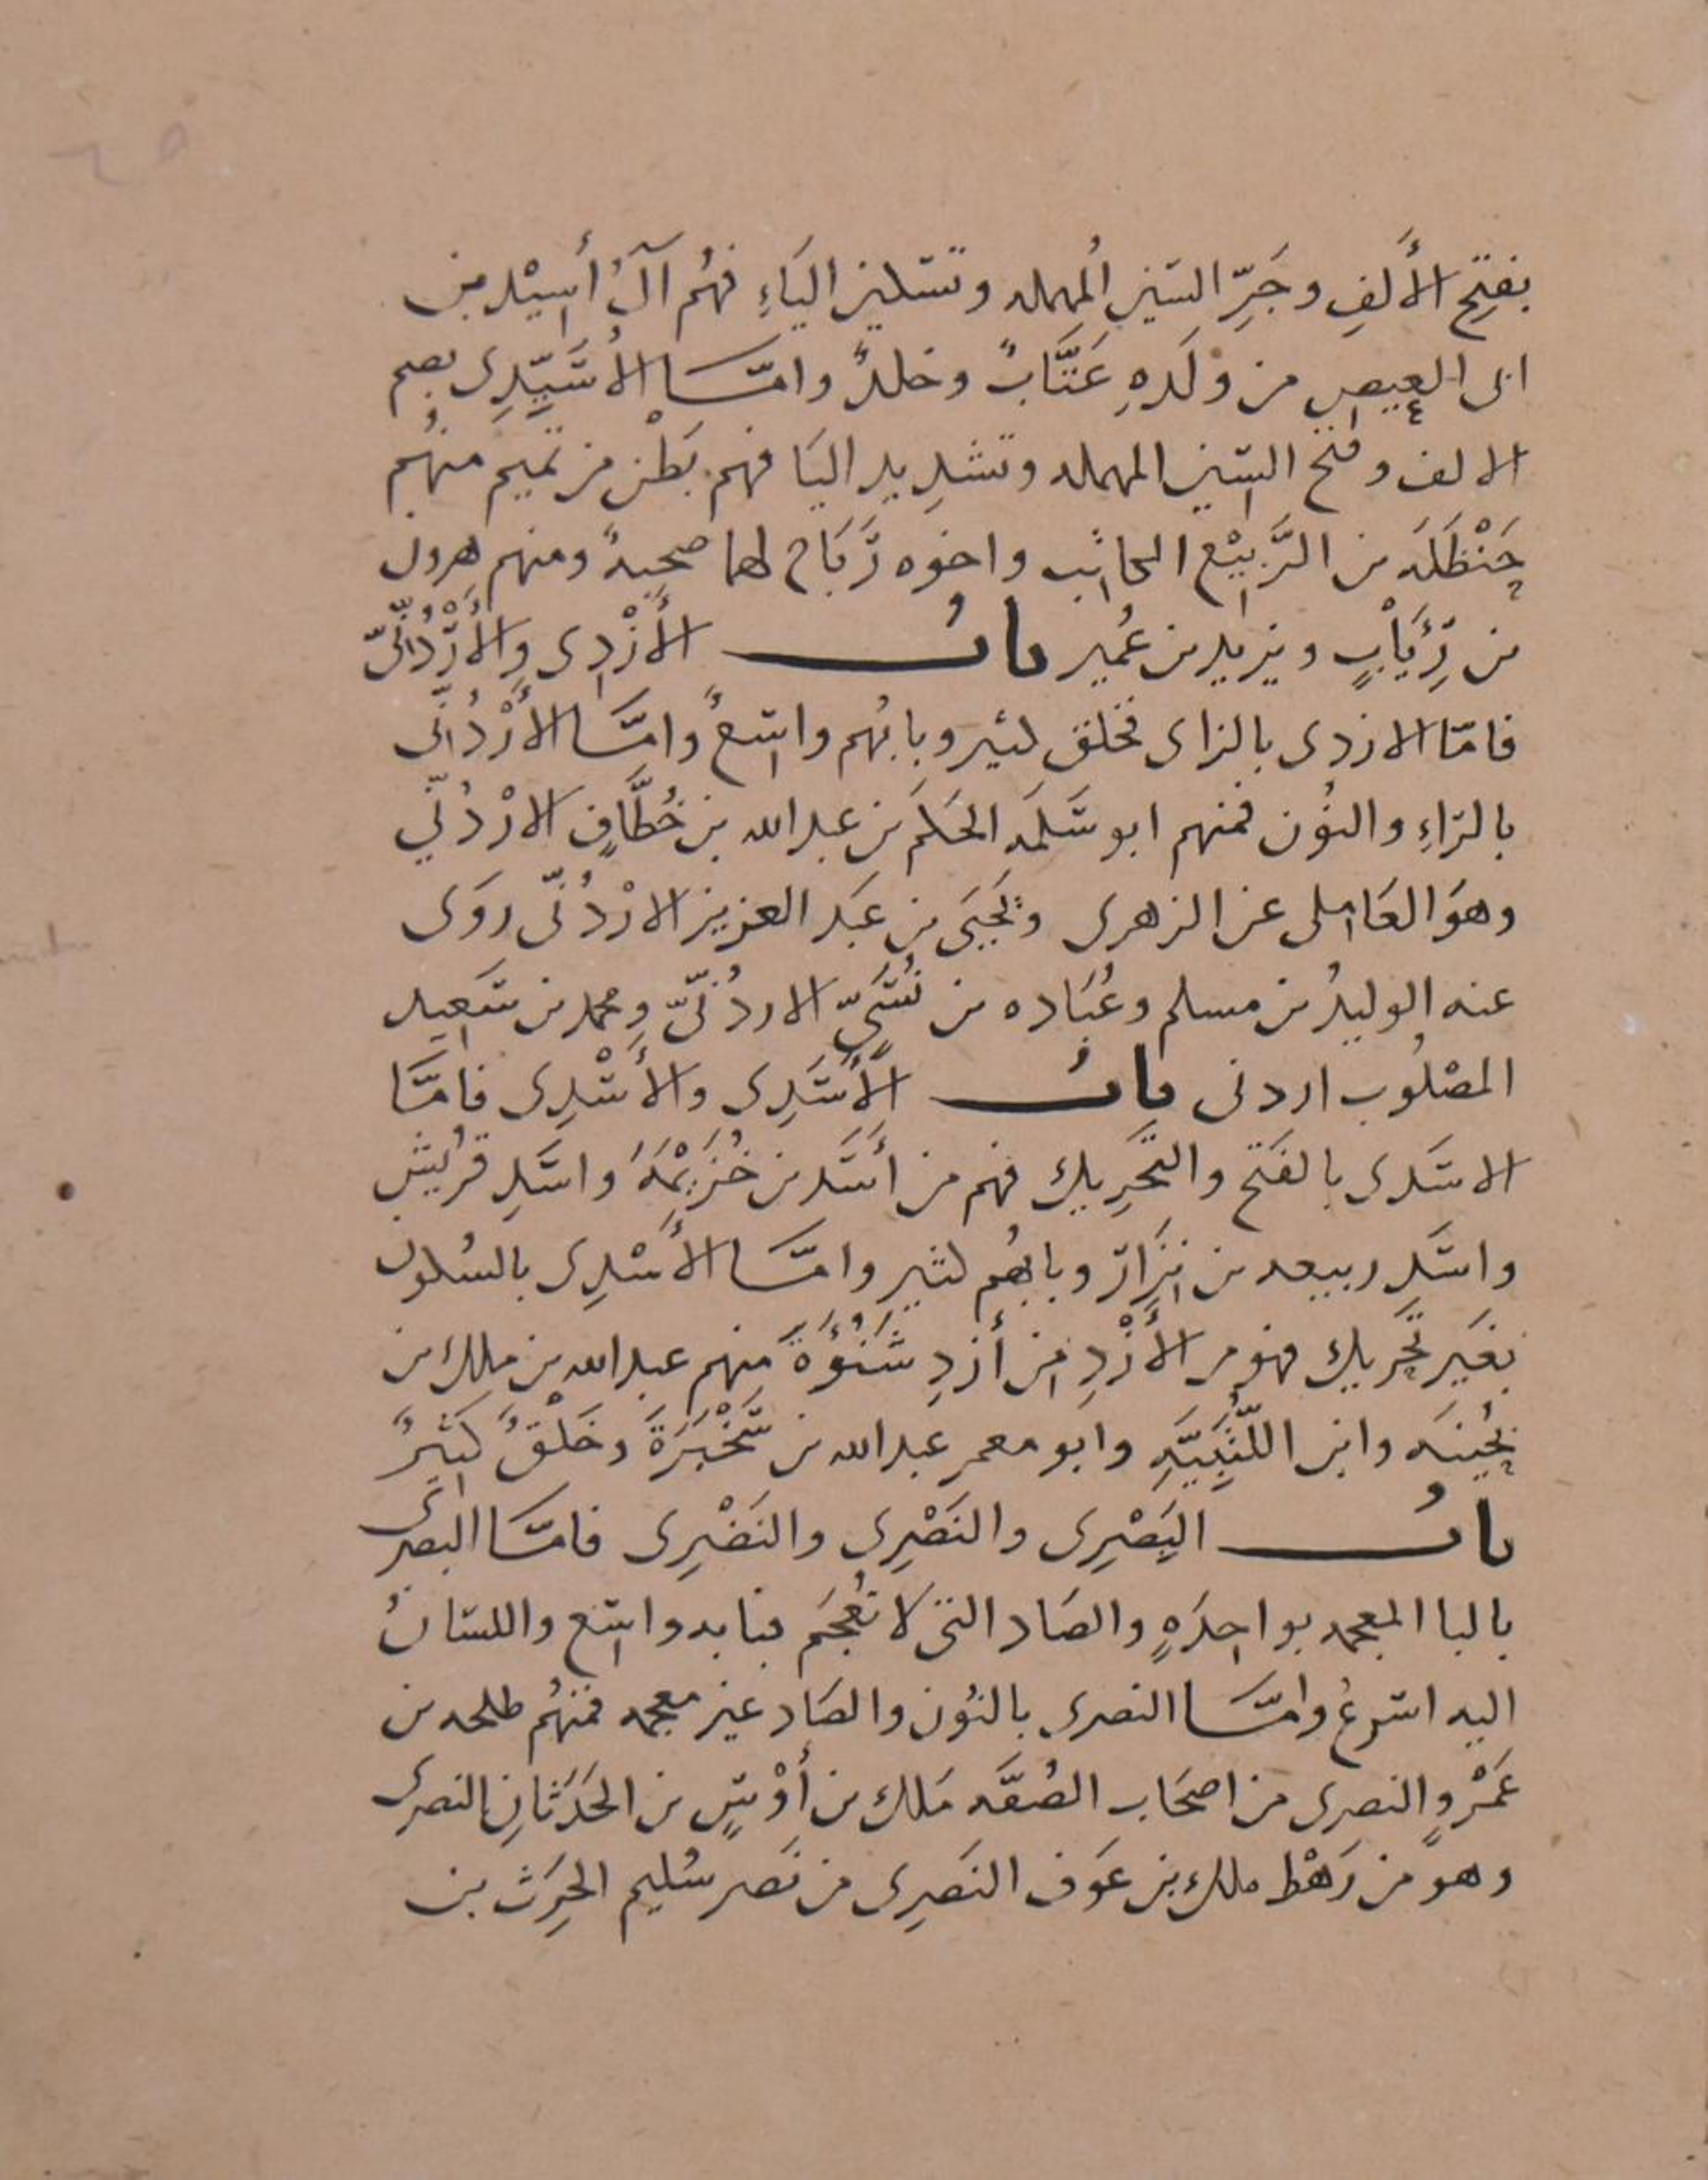 بفتح الأَلفِ وجَرِّ السين المُهمله وتسكين اليَاءِ فهُم آلُ أَسِيْد بن
ابى العيص من وَلَدِهِ عَتَّابٌ وخلدٌ وامَّا الأُسَيِّدِى بضم
الالف وفتح السين المهمله وتشدِيد اليَا فهم بَطْن من تميم منهُم
حَنْظَلَه بن الرَّبيْع الكاتب واخوه رَبَاح لهما صحبةٌ ومنهم هرون
بن رِئَابٍ ويزيد بن عُمير بابُ الأَزْدِى والأُرْدُنِّىّ
فامّا الازدى بالزاى فخلق كثير وبابُهم واسعٌ وامَّا الأُرْدُنّى
بالرّاءِ والنُون فمنهم ابو سَلَمَه الحَكَم بن عبد الله بن خُطَّافٍ الارْدُنّي
وهوَ العَاملى عن الزهرى ويَحيَى بن عَبد العزيز الارْدُنّى روَى
عنه الوليدُ بن مسلم وعُبَاده بن نُسَىّ الاردُنّىّ ومحمد بن سَعِيد
المصْلُوب اردنى بابُ الأَسَدِى والأَسْدِى فامَّا
الاسَدى بالفَتح والتَّحرِيك فهم من أَسَد بن خُزَيْمَهَ واسَدِ قريش
واسَدِ ربيعه بن نِزَار وبابهُم كثير وامَّا الأَسْدِى بالسُكون
بغَير تَحريك فهو من الأَزْدِ مِن أَزدِ شَنُوُءَةَ مِنهم عبد الله بن ملك بن
بُحَينَه وابن اللُّتْبِيَّهِ وابو معمر عبد الله بن سَخْبَرَةَ وخَلْقٌ كَثيرٌ
بابُ البَصْرِى والنَصْرِى والنَضْرِى فامَّا البصرى
بالبا المعجمه بواحِدَهٍ والصَاد التى لا تُعجَم فبابه واسع واللسَانُ
اليه اسْرعُ وامَّا النصرى بالنُون والصَاد غير معجمه فمنهُم طلحه بن
عَمْروٍ النصرى من اصحَاب الصُفَّه مَلك بن أَوْسٍ بن الحَدَثَانِ النصرى
وهو من رَهْط ملك بن عَوَف النَصرِى من نَصر سُليم الحرث بن